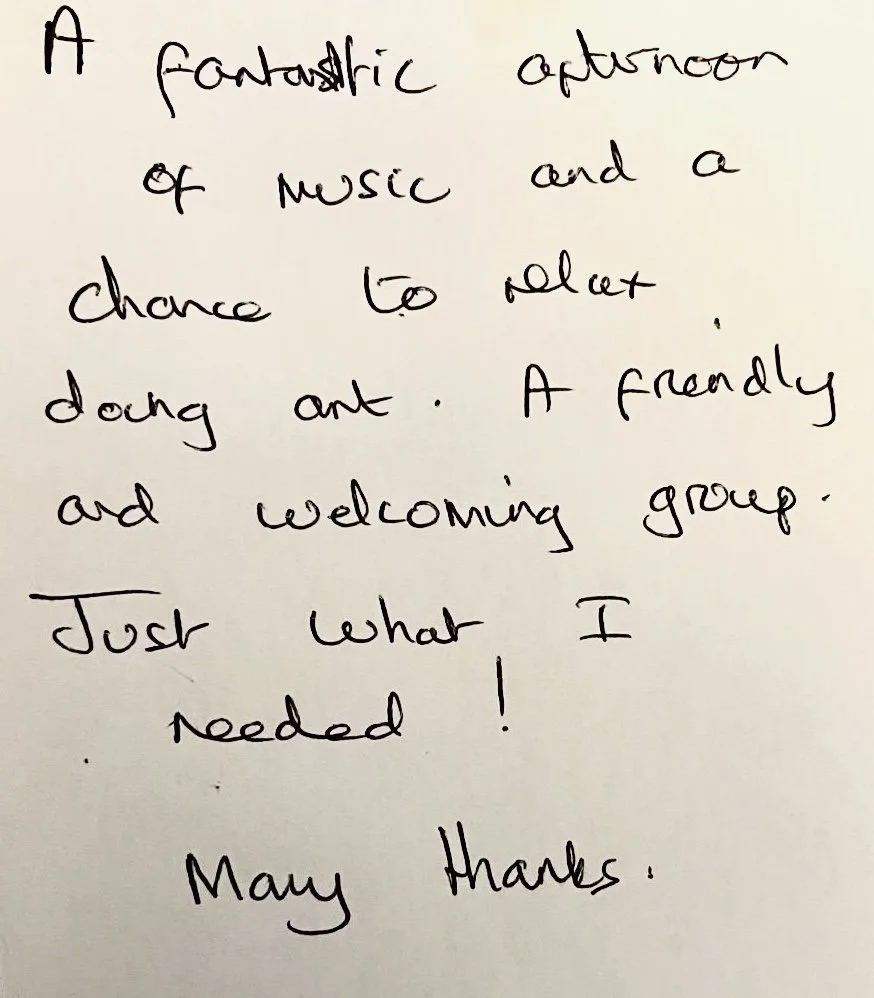 A fantastic afternoon
of music and a
chance to relax
doing art. A friendly
and welcoming group.
Just what I
needed!
Many thanks.